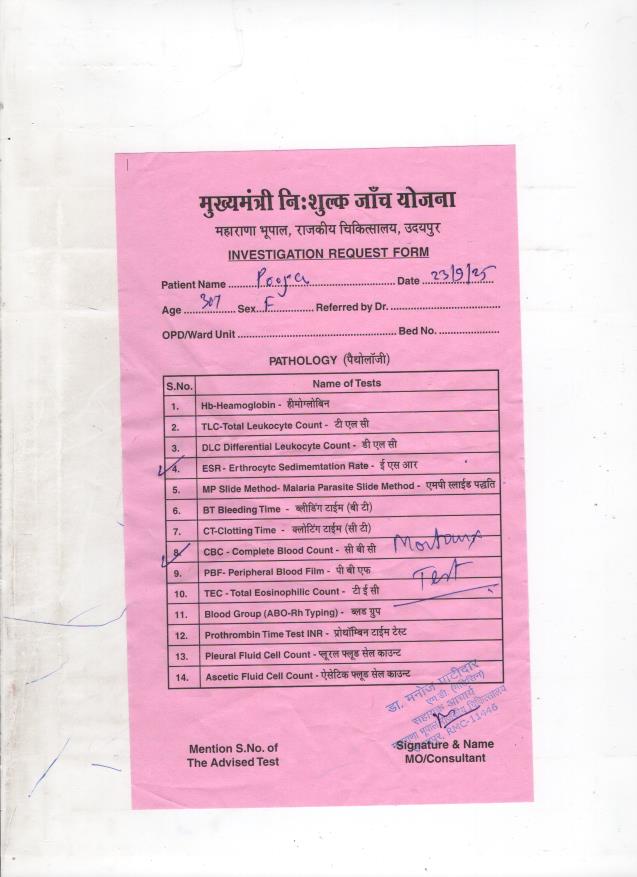 मुख्यमंत्री निःशुल्क जाँच योजना
महाराणा भूपाल, राजकीय चिकित्सालय, उदयपुर
INVESTIGATION REQUEST FORM
Patient Name ........ Pooja ........ Date .. 23/9/25
Age ... 30y ... Sex.. F ........ Referred by Dr. ........
OPD/Ward Unit ........ Bed No. ........
PATHOLOGY (पैथोलॉजी)
S.No. Name of Tests
1. Hb-Heamoglobin - हीमोग्लोबिन
2. TLC-Total Leukocyte Count - टी एल सी
3. DLC Differential Leukocyte Count - डी एल सी
4. ESR - Erthrocytc Sedimemtation Rate - ई एस आर
5. MP Slide Method- Malaria Parasite Slide Method - एमपी स्लाईड पद्धति
6. BT Bleeding Time - ब्लीडिंग टाईम (बी टी)
7. CT-Clotting Time - क्लोटिंग टाईम (सी टी)
8. CBC - Complete Blood Count - सी बी सी Montoux
9. PBF- Peripheral Blood Film - पी बी एफ Test
10. TEC - Total Eosinophilic Count - टी ई सी
11. Blood Group (ABO-Rh Typing) - ब्लड ग्रुप
12. Prothrombin Time Test INR - प्रोथॉम्बिन टाईम टेस्ट
13. Pleural Fluid Cell Count - प्लूरल फ्लूड सेल काउन्ट
14. Ascetic Fluid Cell Count - ऐसेटिक फ्लूड सेल काउन्ट
डा. मनोज पाटीदार
एम.डी. (मेडिसिन)
सहायक आचार्य
महाराणा भूपाल राजकीय चिकित्सालय
उदयपुर, RMC-11446
Mention S.No. of Signature & Name
The Advised Test MO/Consultant